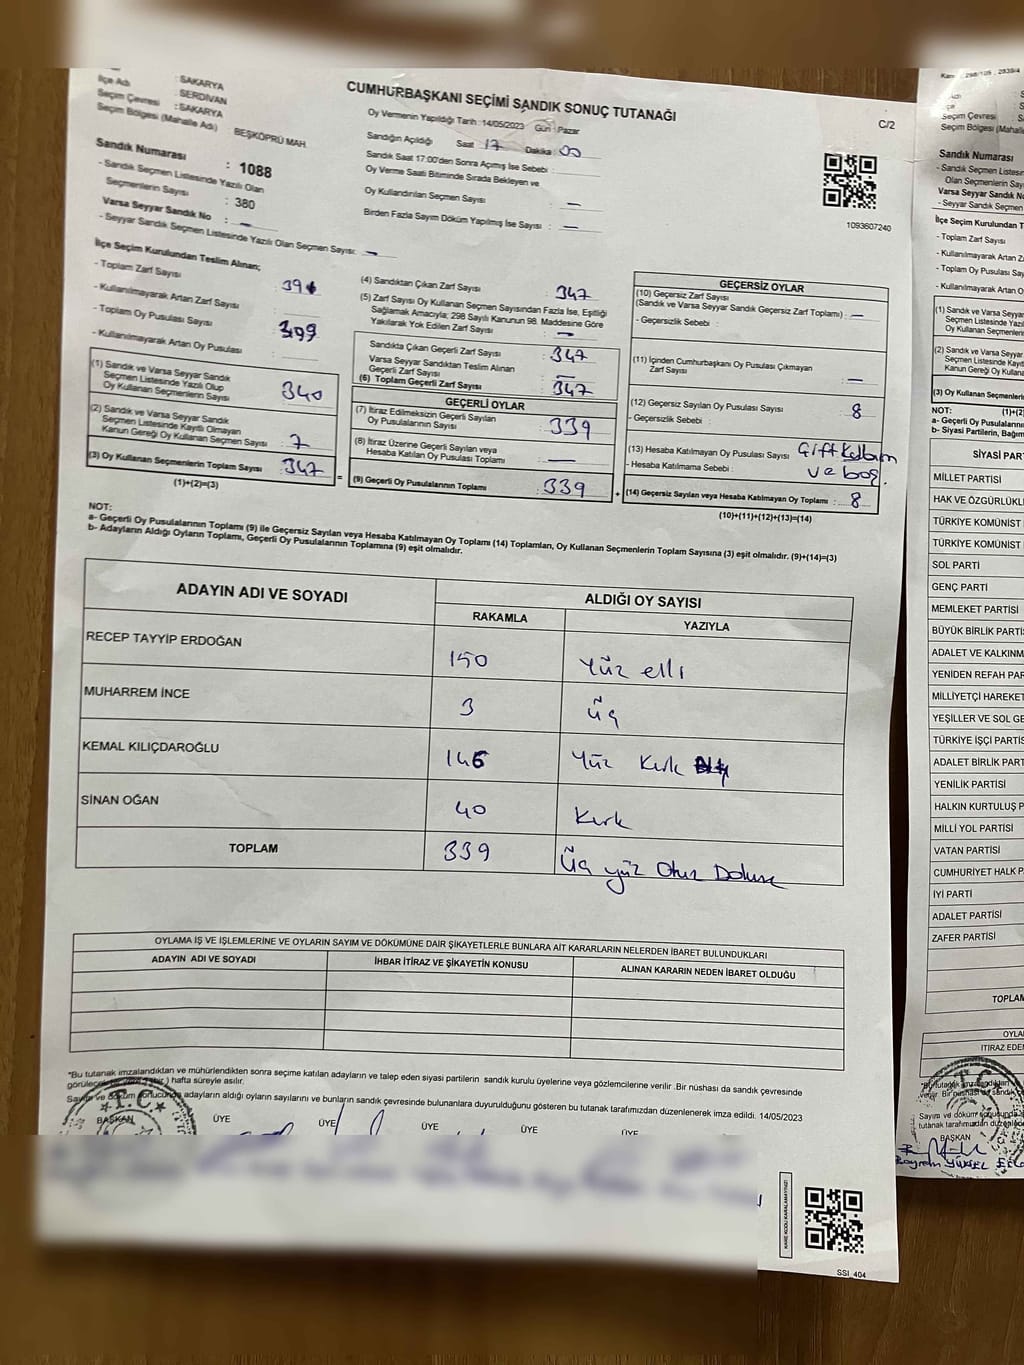 İlçe Adı : SAKARYA
Seçim Çevresi : SERDİVAN
Seçim Bölgesi (Mahalle Adı) : SAKARYA
BEŞKÖPRÜ MAH.
CUMHURBAŞKANI SEÇİMİ SANDIK SONUÇ TUTANAĞI
C/2
Oy Vermenin Yapıldığı Tarih : 14/05/2023 Gün : Pazar
Sandığın Açıldığı Saat : 17 Dakika : 00
Sandık Saat 17:00'den Sonra Açımış İse Sebebi :
Oy Verme Saati Bitiminde Sırada Bekleyen ve
Oy Kullandırılan Seçmen Sayısı : —
Birden Fazla Sayım Döküm Yapılmış İse Sayısı : —
1093607240
Sandık Numarası : 1088
- Sandık Seçmen Listesinde Yazılı Olan
Seçmenlerin Sayısı : 380
Varsa Seyyar Sandık No : —
- Seyyar Sandık Seçmen Listesinde Yazılı Olan Seçmen Sayısı: —
İlçe Seçim Kurulundan Teslim Alınan;
- Toplam Zarf Sayısı
- Kullanılmayarak Artan Zarf Sayısı
- Toplam Oy Pusulası Sayısı : 399
- Kullanılmayarak Artan Oy Pusulası
(1) Sandık ve Varsa Seyyar Sandık
Seçmen Listesinde Yazılı Olup
Oy Kullanan Seçmenlerin Sayısı : 340
(2) Sandık ve Varsa Seyyar Sandık
Seçmen Listesinde Kayıtlı Olmayan
Kanun Gereği Oy Kullanan Seçmen Sayısı : 7
(3) Oy Kullanan Seçmenlerin Toplam Sayısı : 347
(1)+(2)=(3)
(4) Sandıktan Çıkan Zarf Sayısı : 347
(5) Zarf Sayısı Oy Kullanan Seçmen Sayısından Fazla İse, Eşitliği
Sağlamak Amacıyla; 298 Sayılı Kanunun 98. Maddesine Göre
Yakılarak Yok Edilen Zarf Sayısı : —
Sandıkta Çıkan Geçerli Zarf Sayısı : 347
Varsa Seyyar Sandıktan Teslim Alınan
Geçerli Zarf Sayısı : —
(6) Toplam Geçerli Zarf Sayısı : 347
GEÇERLİ OYLAR
(7) İtiraz Edilmeksizin Geçerli Sayılan
Oy Pusulalarının Sayısı : 339
(8) İtiraz Üzerine Geçerli Sayılan veya
Hesaba Katılan Oy Pusulası Toplamı : —
(9) Geçerli Oy Pusulalarının Toplamı : 339
GEÇERSİZ OYLAR
(10) Geçersiz Zarf Sayısı
(Sandık ve Varsa Seyyar Sandık Geçersiz Zarf Toplamı) : —
- Geçersizlik Sebebi :
(11) İçinden Cumhurbaşkanı Oy Pusulası Çıkmayan
Zarf Sayısı : —
(12) Geçersiz Sayılan Oy Pusulası Sayısı : 8
- Geçersizlik Sebebi :
(13) Hesaba Katılmayan Oy Pusulası Sayısı :
- Hesaba Katılmama Sebebi : ve boş.
(14) Geçersiz Sayılan veya Hesaba Katılmayan Oy Toplamı : 8
(10)+(11)+(12)+(13)=(14)
NOT:
a- Geçerli Oy Pusulalarının Toplamı (9) ile Geçersiz Sayılan veya Hesaba Katılmayan Oy Toplamı (14) Toplamları, Oy Kullanan Seçmenlerin Toplam Sayısına (3) eşit olmalıdır. (9)+(14)=(3)
b- Adayların Aldığı Oyların Toplamı, Geçerli Oy Pusulalarının Toplamına (9) eşit olmalıdır.
ADAYIN ADI VE SOYADI
ALDIĞI OY SAYISI
RAKAMLA YAZIYLA
RECEP TAYYİP ERDOĞAN 150 Yüz elli
MUHARREM İNCE 3 Üç
KEMAL KILIÇDAROĞLU 146 Yüz Kırk Altı
SİNAN OĞAN 40 Kırk
TOPLAM 339 Üç yüz Otuz Dokuz
OYLAMA İŞ VE İŞLEMLERİNE VE OYLARIN SAYIM VE DÖKÜMÜNE DAİR ŞİKAYETLERLE BUNLARA AİT KARARLARIN NELERDEN İBARET BULUNDUKLARI
ADAYIN ADI VE SOYADI İHBAR İTİRAZ VE ŞİKAYETİN KONUSU ALINAN KARARIN NEDEN İBARET OLDUĞU
*Bu tutanak imzalandıktan ve mühürlendikten sonra seçime katılan adayların ve talep eden siyasi partilerin sandık kurulu üyelerine veya gözlemcilerine verilir .Bir nüshası da sandık çevresinde
hafta süreyle asılır.
Sayım ve döküm sonucunda adayların aldığı oyların sayılarını ve bunların sandık çevresinde bulunanlara duyurulduğunu gösteren bu tutanak tarafımızdan düzenlenerek imza edildi. 14/05/2023
T.C.
BAŞKAN ÜYE ÜYE ÜYE ÜYE ÜYE
KARE KODU KARALAMAYINIZ!
SSI_404
Seçim Çevresi
Seçim Bölgesi (Mahalle
Sandık Numarası
- Sandık Seçmen
Olan Seçmenlerin
Varsa Seyyar Sandık
- Seyyar Sandık Seçmen
İlçe Seçim Kurulundan
- Toplam Zarf Sayısı
- Kullanılmayarak Artan
- Toplam Oy Pusulası
- Kullanılmayarak Artan
(1) Sandık ve Varsa Seyyar
Seçmen Listesinde
Oy Kullanan
(2) Sandık ve Varsa
Seçmen Listesinde
Kanun Gereği Oy
(3) Oy Kullanan Seçmenlerin
NOT: (1)+(2
a- Geçerli Oy
b- Siyasi Partilerin,
SİYASİ
MİLLET PARTİSİ
HAK VE
TÜRKİYE KOMÜNİST
TÜRKİYE KOMÜNİST
SOL PARTİ
GENÇ PARTİ
MEMLEKET PARTİSİ
BÜYÜK BİRLİK
ADALET VE
YENİDEN REFAH
MİLLİYETÇİ HAREKET
YEŞİLLER VE SOL
TÜRKİYE İŞÇİ
ADALET BİRLİK
YENİLİK PARTİSİ
HALKIN KURTULUŞ
MİLLİ YOL PARTİSİ
VATAN PARTİSİ
CUMHURİYET HALK
İYİ PARTİ
ADALET PARTİSİ
ZAFER PARTİSİ
İTİRAZ
Sayım ve döküm
tutanak tarafımızdan
BAŞKAN
Bayram YÜKSEL